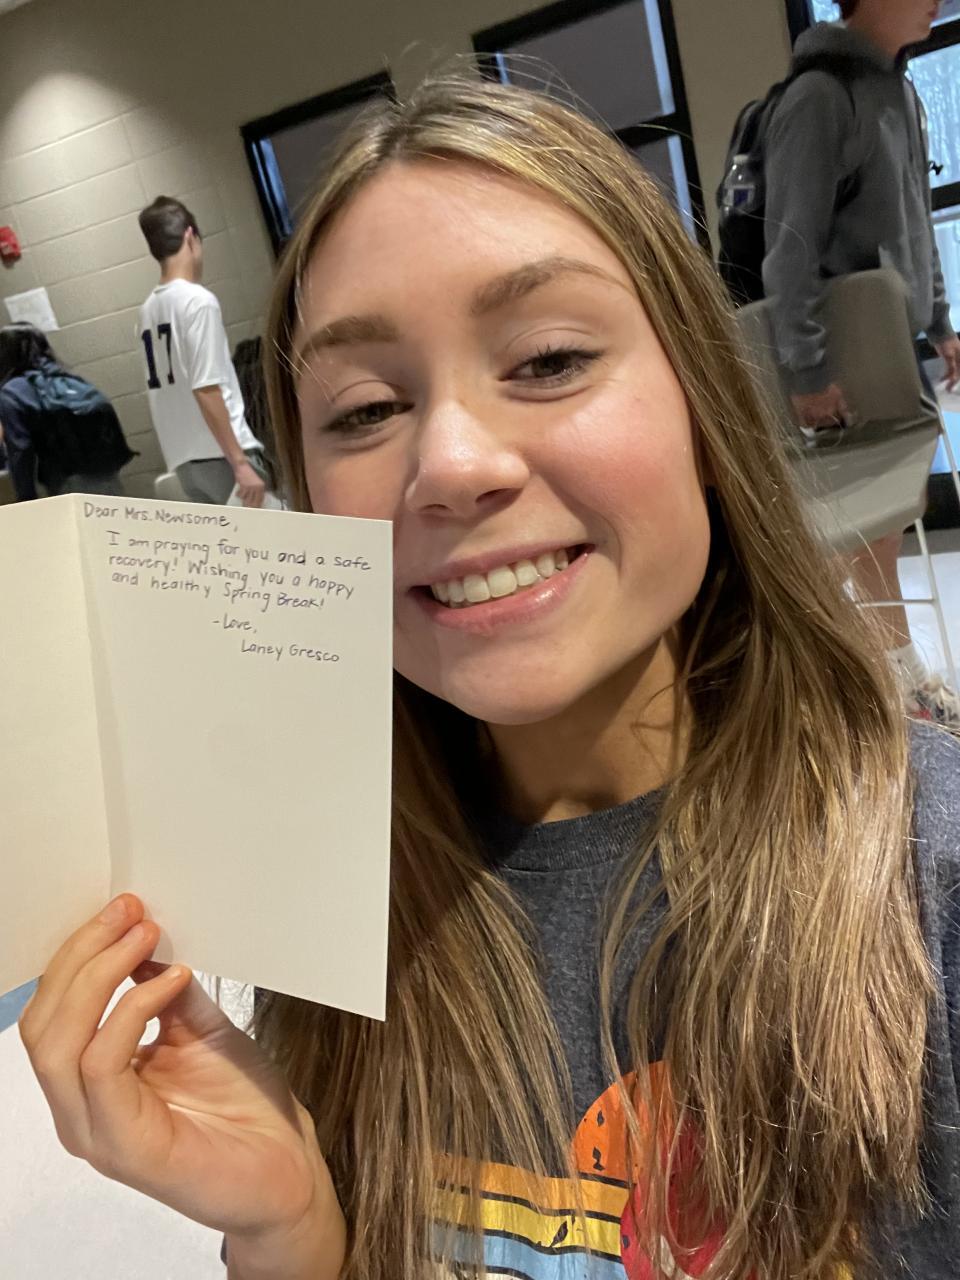 Dear Mrs. Newsome,
I am praying for you and a safe
recovery! Wishing you a happy
and healthy Spring Break!
-Love,
Laney Gresco
17